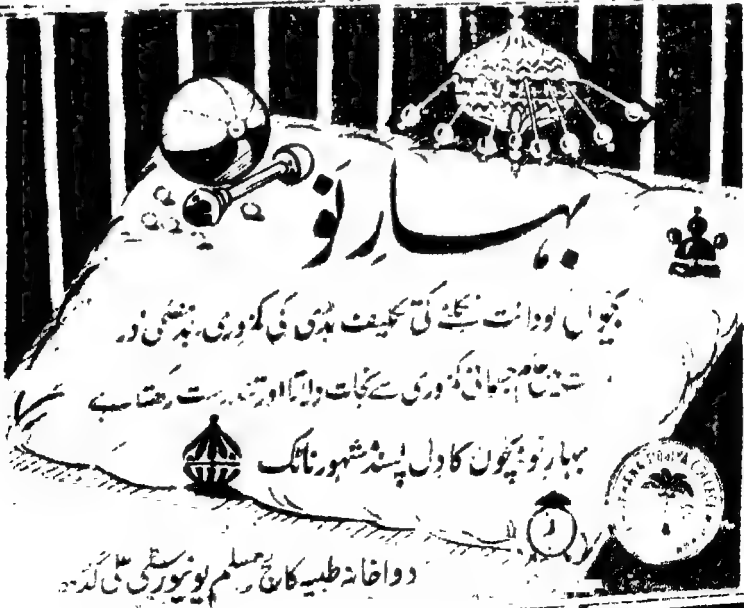 بہارِ نَو
بچوں کو دانت نکلنے کی تکلیف ہڈی کی کمزوری، بدہضمی اور
میں عام جسمانی کمزوری سے نجات دلاتا اور تندرست رکھتا ہے
بہارِ نَو: بچوں کا دل پسند مشہور ٹانک
TIBBIYA COLLEGE
دواخانہ طبیہ کالج مسلم یونیورسٹی علی گڑھ